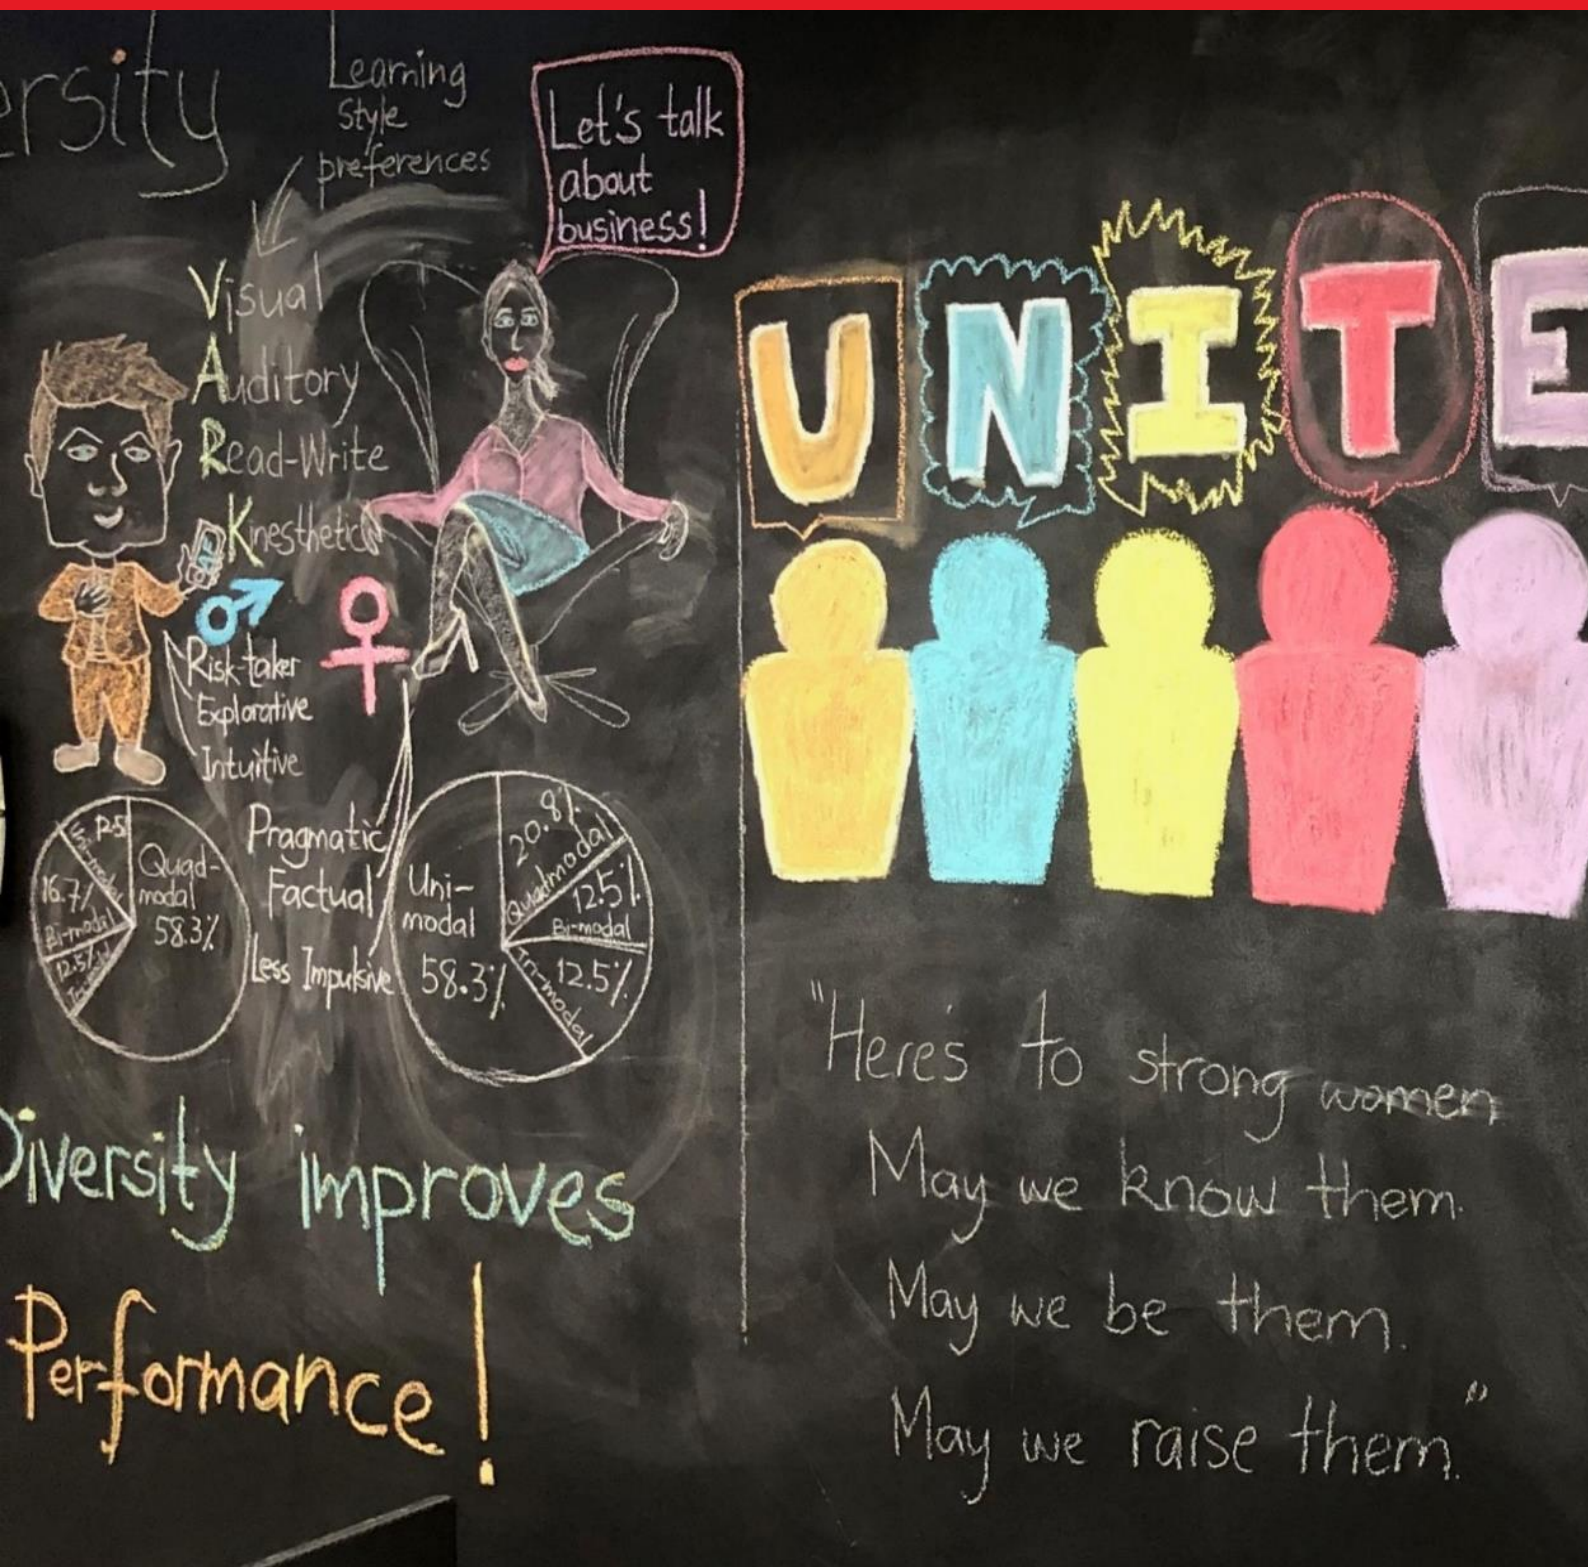 ersity
Learning
Style
preferences
Let's talk
about
business!
Visual
Auditory
Read-Write
Kinesthetic
Risk-taker
Explorative
Intuitive
Pragmatic
Factual
Less Impulsive
12.5
Uni-modal
Quad-
modal
58.3%
16.7%
Bi-modal
12.5%
Tri-modal
Uni-
modal
58.3%
20.8%
Quadmodal
12.5%
Bi-modal
Tri-modal
12.5%
Diversity improves
Performance!
UNITE
"Here's to strong women
May we know them.
May we be them.
May we raise them."